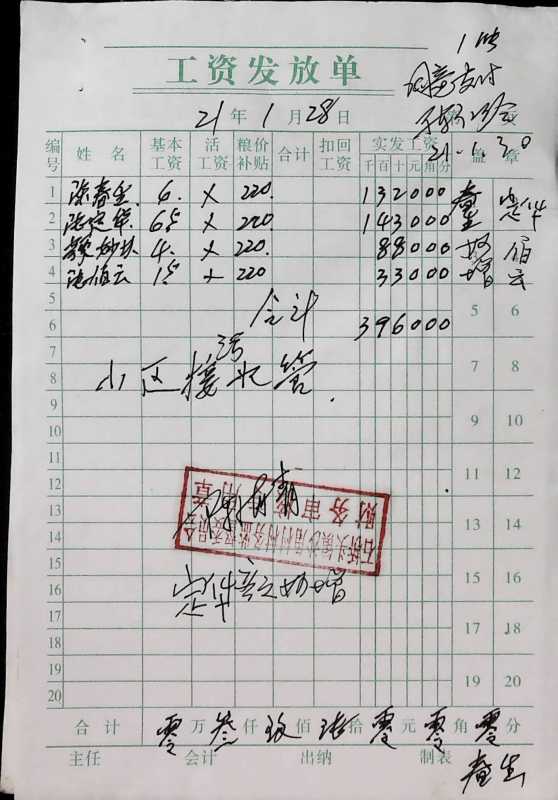 工资发放单
同意支付
21年1月28日
21.1.30
编号 姓名 基本工资 活工资 粮价补贴 合计 扣回工资 实发工资 千百十元角分 盖章
1 陈春生 6. × 220. 132000 春生
2 6.5 × 220 143000 定华
3 妙 4. × 220. 88000
4 陈伯云 1.5 × 220 33000 伯云
5 合计 5 6
6 396000
7 小区接污水管 7 8
8
9 9 10
10
11 11 12
12
13 13 14
14
15 15 16
16
17 17 18
18
19 19 20
20
石桥头镇沙角村村务监督委员会
财务审核专用章
合计 零万叁仟玖佰陆拾零元零角零分
主任 会计 出纳 制表 春生